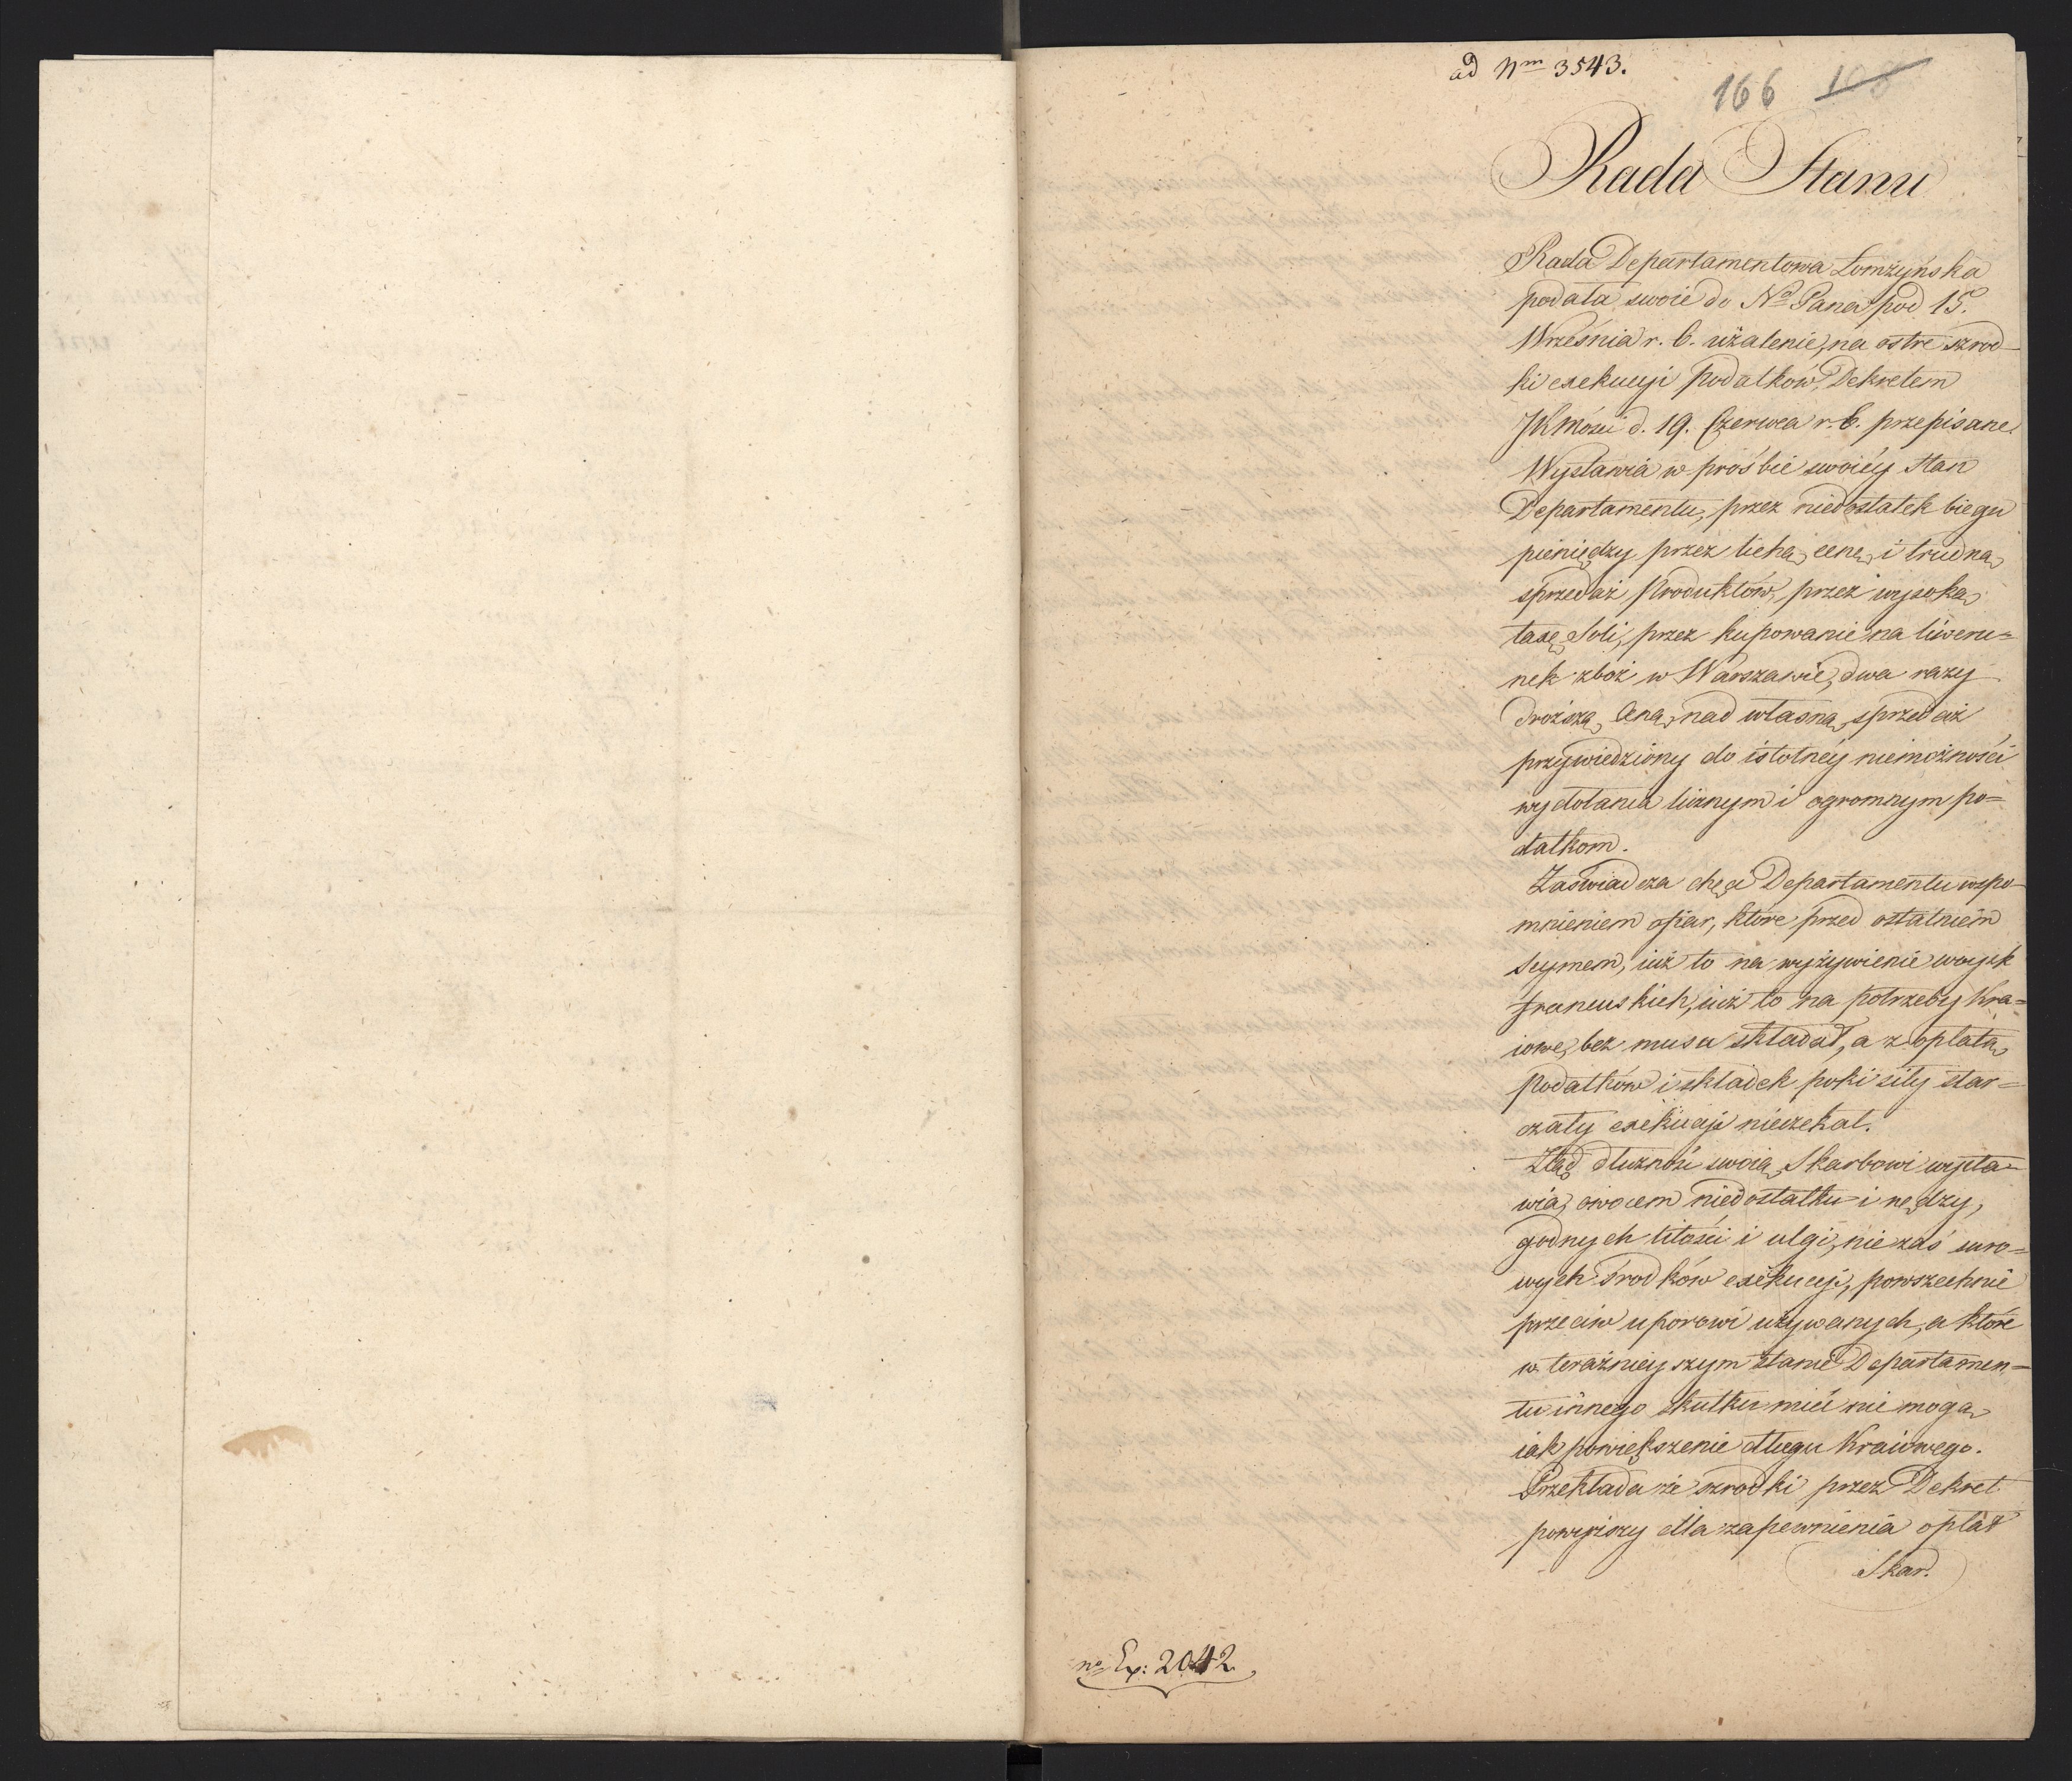 ad Nm 3543.
166 108
Rada Stanu
Rada Departamentowa Łomżyńska
podała swoie do No Pana pod 15.
Września r. b. użalenie, na ostre szrod-
ki exekucyi podatków, Dekretem
JKMości d. 19. Czerwca r. b. przepisane.
Wystawia w prośbie swoiéy stan
Departamentu, przez niedostatek biegu
pieniędzy przez lichą cenę i trudną
sprzedaż Produktów, przez wysoką
taxę Soli, przez kupowanie na liweru=
nek zboż w Warszawie, dwa razy
droższą Ceną nad własną sprzedaż
przywiedziony do istotnéy niemożności
wydołania licznym i ogromnym po=
datkom.
Zaświadcza chęci Departamentu wspo-
mnieniem ofiar, które przed ostatniem
Seymem, iuż to na wyżywienie woysk
francuskich, iuż to na potrzeby Kra=
iowe, bez musu składał, a z opłatą
Podatków i składek poki siły star=
czały exekucyi nieczekał.
Ztąd dłużność swoią Skarbowi wysta=
wia, owocem niedostatku i nędzy,
godnych litości i ulgi, nie zaś suro=
wych środków exekucyi, powszechnie
przeciw uporowi używanych, a które
w teraźnieyszym stanie Departamen=
tu innego skutku mieć nie mogą
iak powiększenie długu Kraiowego.
Przekłada że szrodki przez Dekret
powyższy dla zapewnienia opłat
Skar.
no Ex: 2042.